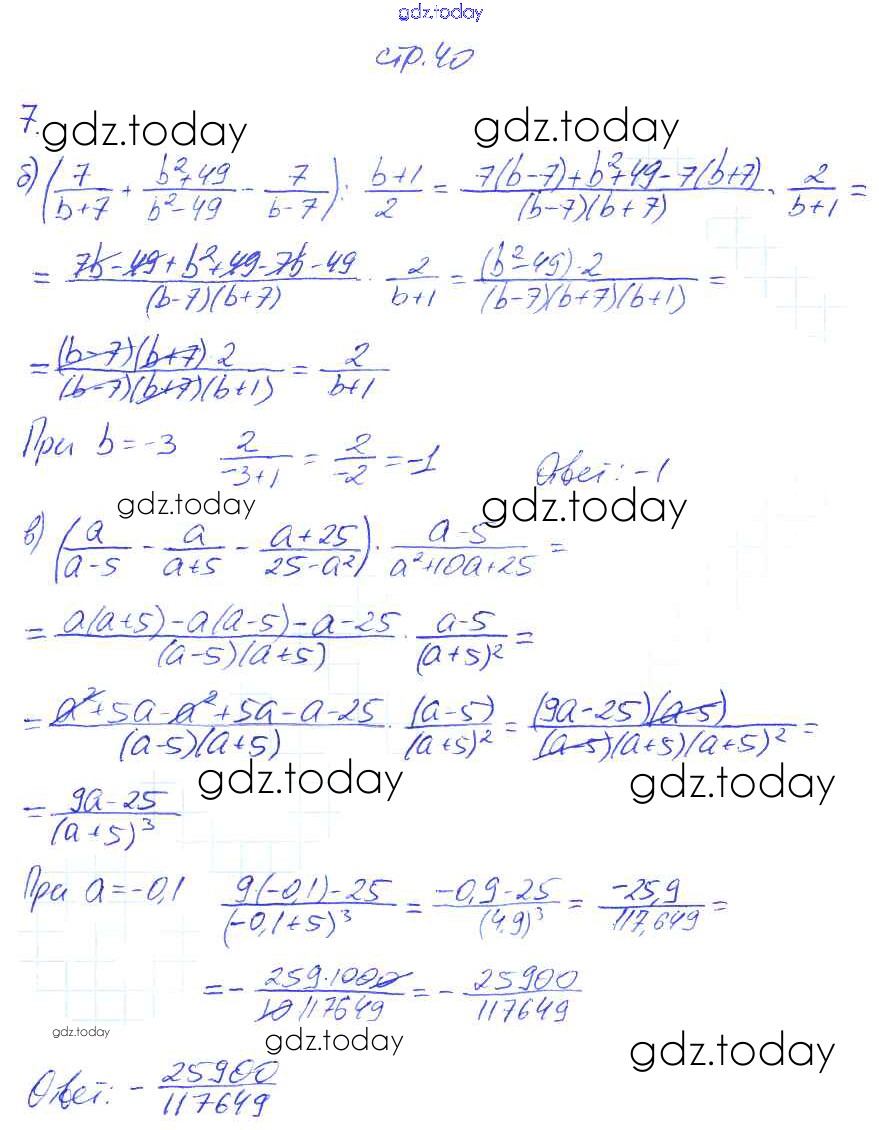 gdz.today
стр. 40
7.
gdz.today gdz.today
б) (7/(b+7) + (b²+49)/(b²-49) - 7/(b-7)) : (b+1)/2 = (7(b-7)+b²+49-7(b+7))/((b-7)(b+7)) · 2/(b+1) =
= (7b-49+b²+49-7b-49)/((b-7)(b+7)) · 2/(b+1) = ((b²-49)·2)/((b-7)(b+7)(b+1)) =
= ((b-7)(b+7)·2)/((b-7)(b+7)(b+1)) = 2/(b+1)
При b=-3 2/(-3+1) = 2/(-2) = -1 Ответ: -1
gdz.today gdz.today
в) (a/(a-5) - a/(a+5) - (a+25)/(25-a²)) · (a-5)/(a²+10a+25) =
= (a(a+5)-a(a-5)-a-25)/((a-5)(a+5)) · (a-5)/(a+5)² =
= (a²+5a-a²+5a-a-25)/((a-5)(a+5)) · (a-5)/(a+5)² = ((9a-25)(a-5))/((a-5)(a+5)(a+5)²) =
gdz.today gdz.today
= (9a-25)/(a+5)³
При a=-0,1 (9·(-0,1)-25)/(-0,1+5)³ = (-0,9-25)/(4,9)³ = -25,9/117,649 =
= - (259·1000)/(10·117649) = - 25900/117649
gdz.today gdz.today gdz.today
Ответ: - 25900/117649